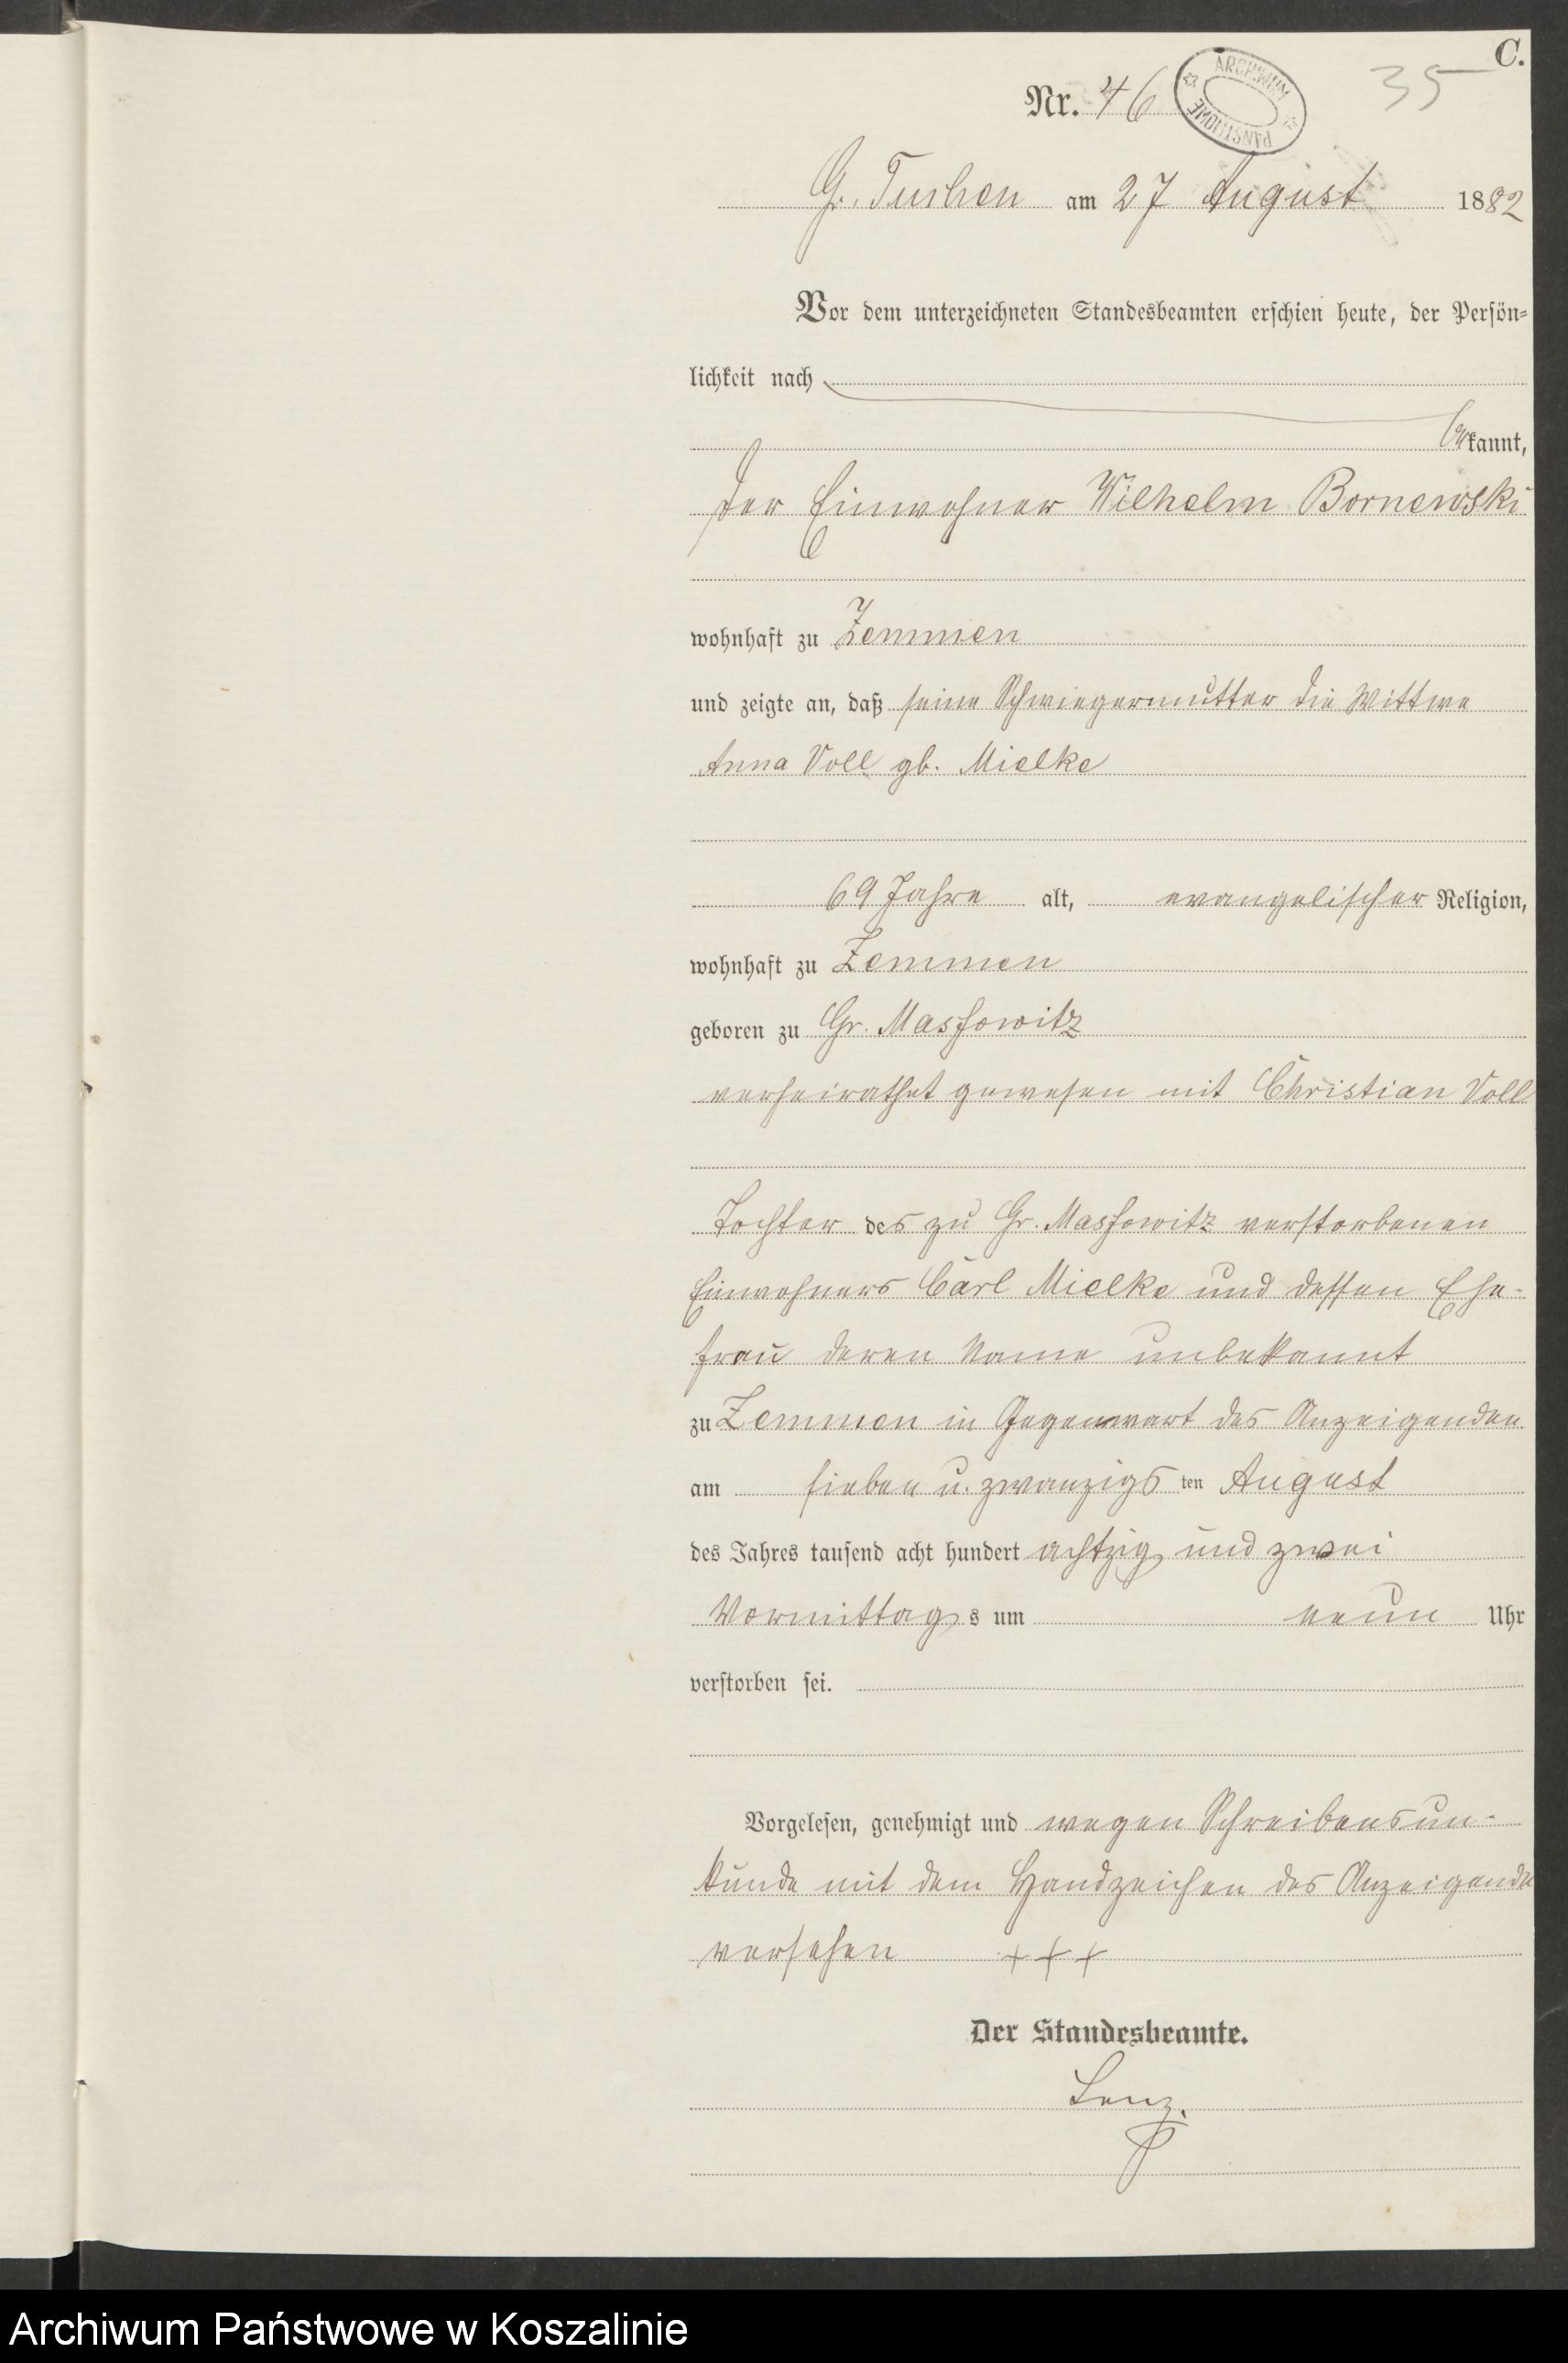 C.
Nr. 46
ARCHIWUM PAŃSTWOWE
35
G. Tuchen am 27 August 1882
Vor dem unterzeichneten Standesbeamten erschien heute, der Persön-
lichkeit nach
bekannt,
der Einwohner Wilhelm Bornowski
wohnhaft zu Zemmen
und zeigte an, daß seine Schwiegermutter die Wittwe
Anna Voll gb. Mielke
69 Jahre alt, evangelischer Religion,
wohnhaft zu Zemmen
geboren zu Gr. Massowitz
verheirathet gewesen mit Christian Voll
Tochter des zu Gr. Massowitz verstorbenen
Einwohners Carl Mielke und dessen Ehe-
frau deren Name unbekannt
zu Zemmen in Gegenwart des Anzeigenden
am sieben u. zwanzigsten August
des Jahres tausend acht hundert achtzig und zwei
Vormittags um neun Uhr
verstorben sei.
Vorgelesen, genehmigt und wegen Schreibensun-
kunde mit dem Handzeichen des Anzeigende
versehen +++
Der Standesbeamte.
Lenz.
Archiwum Państwowe w Koszalinie